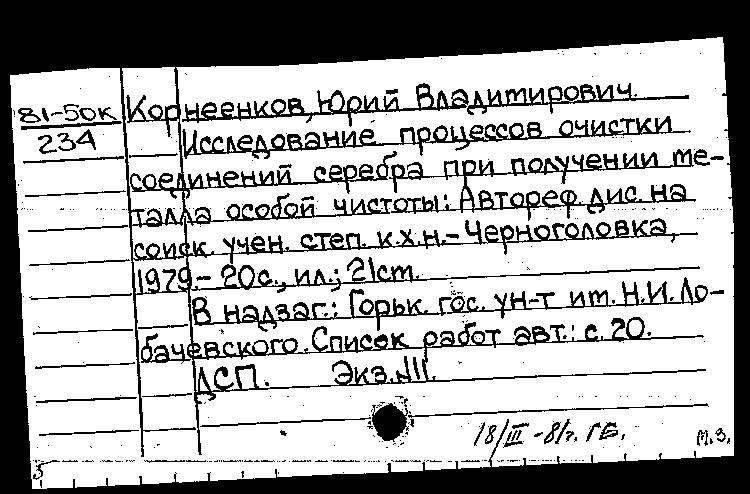 81-50к
234
Корнеенков, Юрий Владимирович.
Исследование процессов очистки
соединений серебра при получении ме-
талла особой чистоты: Автореф. дис. на
соиск. учен. степ. к.х.н. - Черноголовка,
1979. - 20с., ил.; 21см.
В надзаг.: Горьк. гос. ун-т им. Н.И. Ло-
бачевского. Список работ авт.: с. 20.
ДСП. Экз. N11.
18/III -81г. ГБ.
м.з.